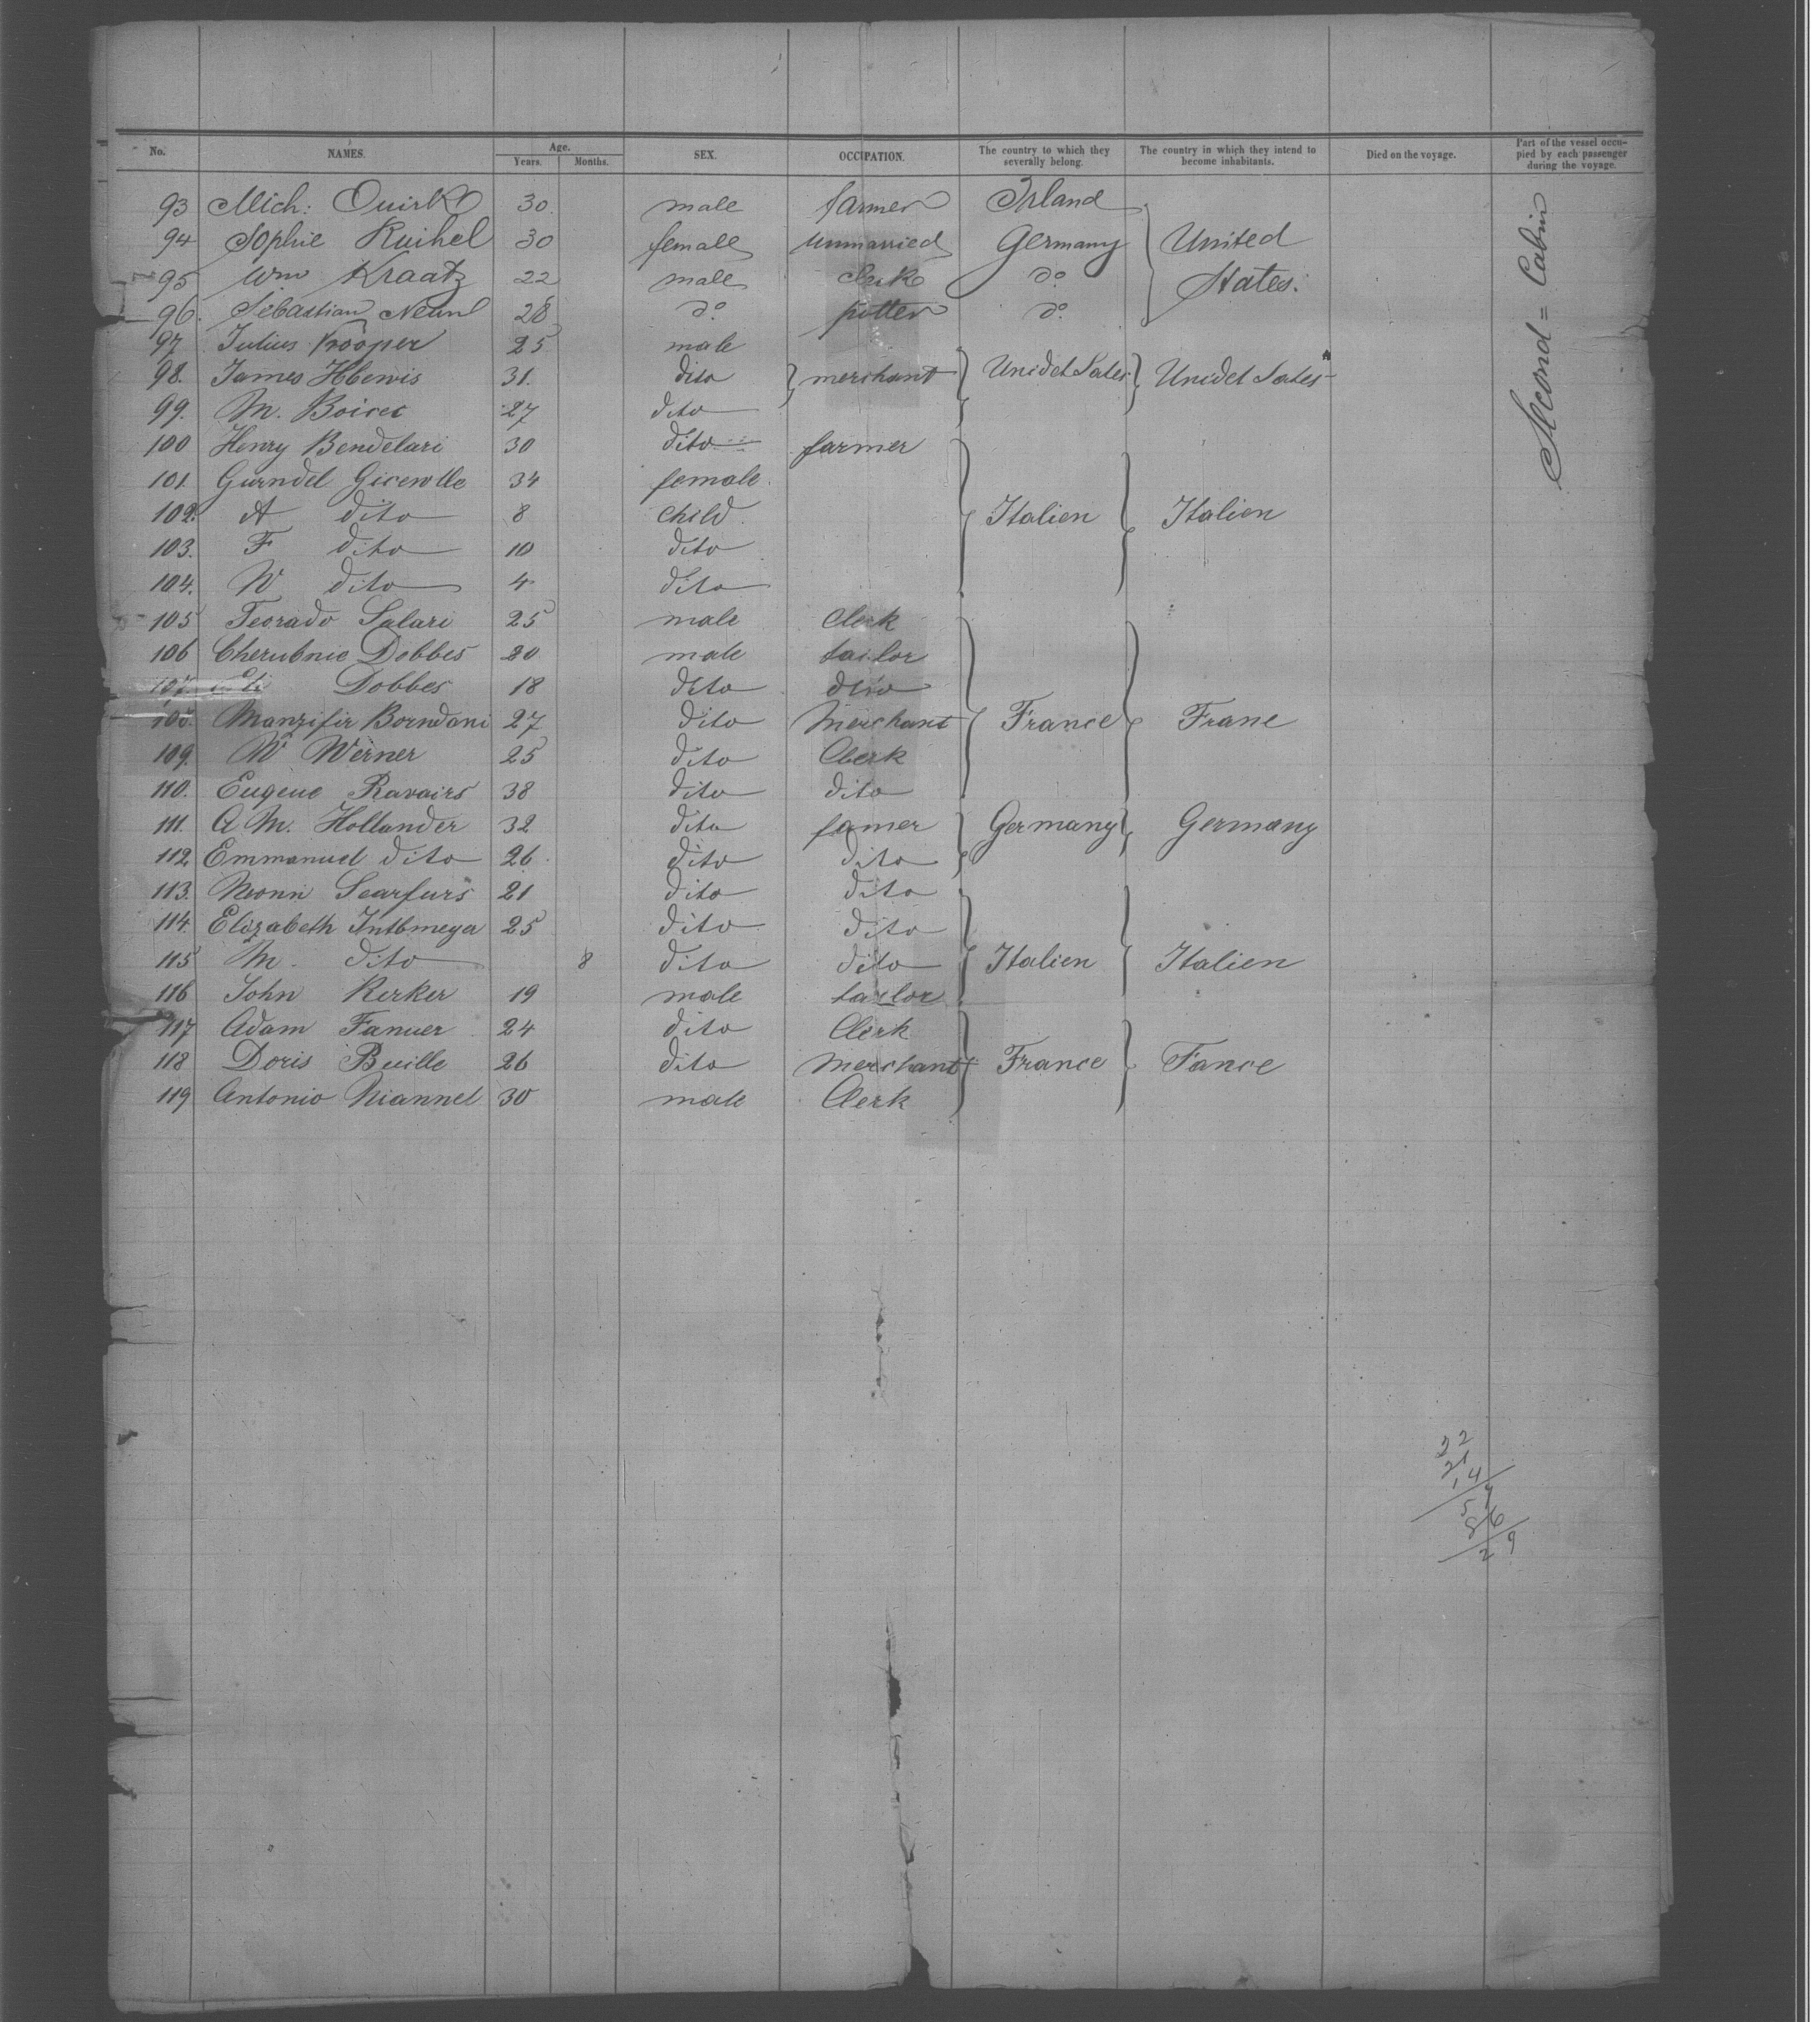 No. NAMES. Age. Years. Months. SEX. OCCUPATION. The country to which they severally belong. The country in which they intend to become inhabitants. Died on the voyage. Part of the vessel occupied by each passenger during the voyage.
93 Mich: Quirk 30. male farmer Irland
94 Sophie Kuihel 30 female unmarried Germany United
95 Wm Kraatz 22 male clerk do States.
96. Sebastian 28 do. potter do.
97 Julius Krooper 25 male
98. James 31. dito merchant Unidet Sates Unidet Sates
99. M. Boicet 27 dito
100 Henry Bendelari 30 dito farmer
101. Gurndel 34 female.
102. A dito 8 child. Italien Italien
103. F dito 10 dito
104. W dito 4 dito
105 Teorado Salari 25 male Clerk
106 Cherubnie Dobbes 20 male tailor
107. Dobbes 18 dito dito
108. Manzifir Borndani 27 dito Merchant France Frane
109. W Werner 25 dito Clerk
110. Eugene Ravairs 38 dito dito
111. A M. Hollander 32 dito famer Germany Germany
112 Emmanuel dito 26. dito dito
113. Monn Scarfurs 21 dito dito
114. Elizabeth Intbmeyer 25 dito dito
115 M. dito 8 dito dito Italien Italien
116 John Kerker 19 male tailor
117 Adam Fanuer 24 dito Clerk
118 Doris Buille 26 dito Merchant France Fance
119 Antonio Niannel 30 male Clerk
Second = Cabin